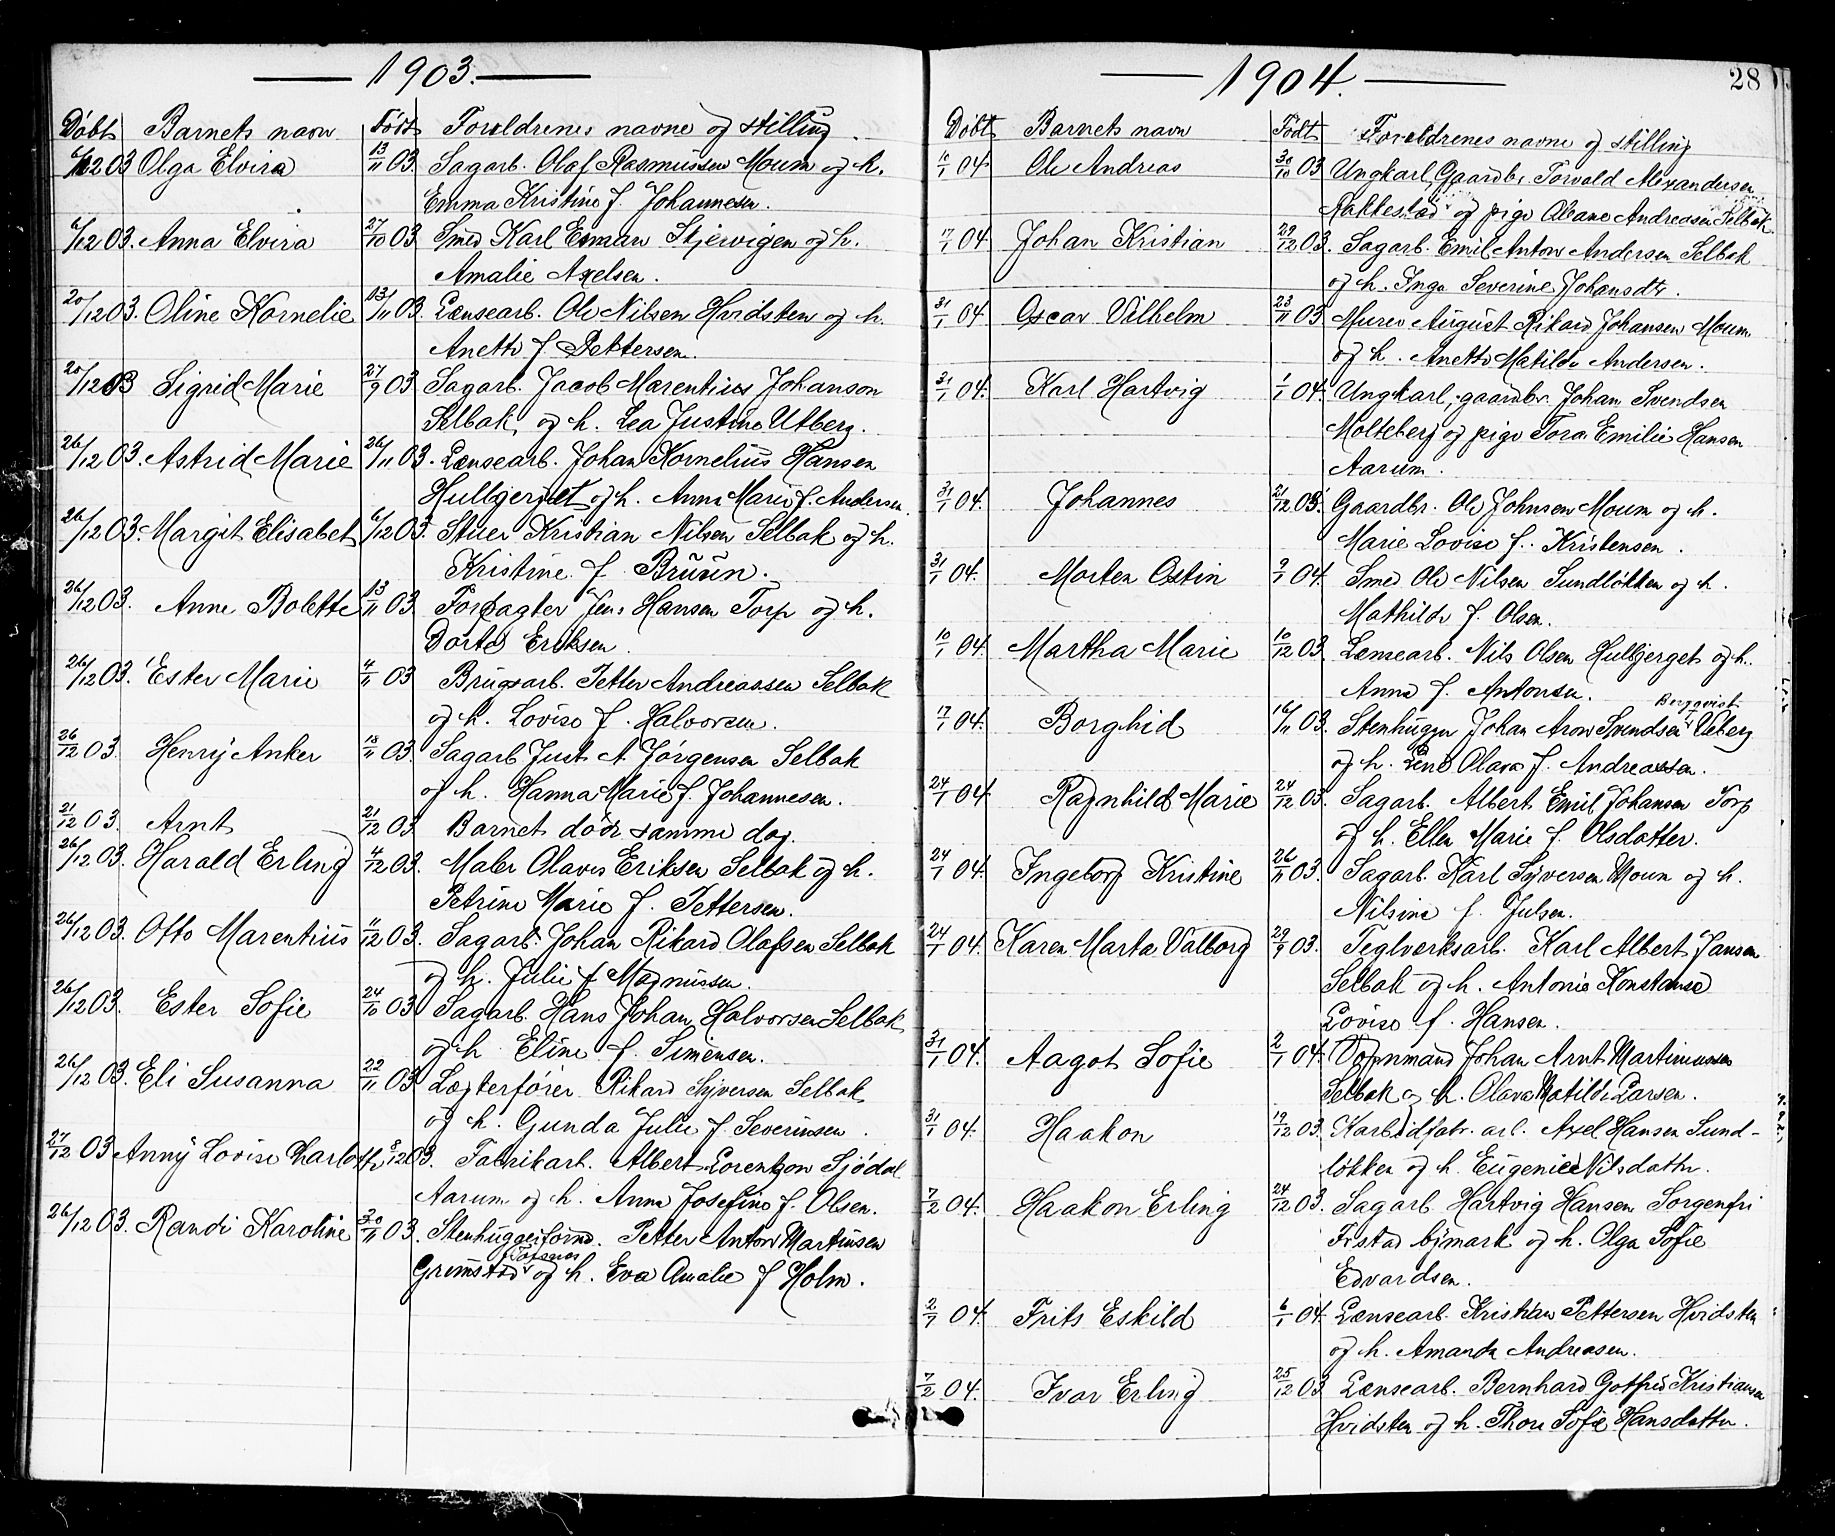 1903.
Döbt Barnets navn Födt Foreldrenes navne og stilling.
6/12 03 Olga Elvira 13/11 03. Sagarb. Olaf Rasmussen Moum og h.
Emma Kristine f. Johannesen.
6/12 03. Anna Elvira 27/10 03 Smed Karl Esman Skjewigen og h.
Amalie Axelsen.
20/12 03. Oline Kornelie 13/11 03. Lænsearb. Ole Nilsen Hvidsten og h.
Anette f. Pettersen.
20/12 03 Sigrid Marie 27/9 03 Sagarb. Jacob Marentius Johanson
Selbak, og h. Lea Justine Utberg.
26/12 03. Astrid Marie 26/11 03. Lænsearb. Johan Kornelius Hansen
Hulbjerget og h. Anna Marie f. Andersen.
26/12 03. Margit Elisabet 6/12 03. Stuer Kristian Nilsen Selbak og h.
Kristine f. Bruun.
26/12 03. Anne Bolette 13/11 03. Forpagter Jens Hansen Torp og h.
Dorte Eriksen.
26/12 03. Ester Marie 4/11 03 Brugsarb. Petter Andreassen Selbak
og h. Lovise f. Halvorsen.
26/12 03. Henry Anker 18/11 03. Sagarb. Just A. Jörgensen Selbak
og h. Hanna Marie f. Johannesen.
21/12 03. Arnt 21/12 03 Barnet döde samme dag.
26/12 03. Harald Erling 4/12 03. Maler Olaves Eriksen Selbak og h.
Petrine Marie f. Pettersen.
26/12 03. Otto Marentius 11/12 03. Sagarb. Johan Rikard Olafsen Selbak
og h. Julie f. Magnussen.
26/12 03. Ester Sofie 24/10 03 Sagarb. Hans Johan Halvorsen Selbak
og h. Eline f. Simensen.
26/12 03. Eli Susanna 22/11 03 Lægterförer Rikard Syversen Selbak
og h. Gunda Julie f. Severinsen.
27/12 03 Anny Lovise Charlotte 8/12 03. Fabrikarb. Albert Lorentzon Sjödal
Aarum og h. Anna Josefine f. Olsen.
26/12 03. Randi Karoline 30/11 03. Stenhuggerformd. Petter Anton Martinsen
Grimstad og h. Eva Amalie f Holm.
1904. 28
Döbt Barnets navn Födt Foreldrenes navne og stilling
10/1 04 Ole Andreas 30/10 03 Ungkarl, Gaardbr. Torvald Alexandersen
Rakkestad og pige Oleane Andreasen Selbak.
17/1 04 Johan Kristian 29/12 03. Sagarb. Emil Anton Andersen Selbak
og h. Inga Severine Johansdtr.
31/1 04 Oscar Vilhelm 23/11 03 Murer August Rikard Johansen Moum
og h. Anette Matilde Andersen.
31/1 04. Karl Hartvig 1/1 04. Ungkarl, gaardbr. Johan Svendsen
Molteberg og pige Tora Emilie Hansen
Aarum.
31/1 04. Johannes 21/12 03. Gaardbr. Ole Johnsen Moum og h.
Marie Lovise f. Kristensen.
31/1 04. Morten Ostin 9/1 04. Smed Ole Nilsen Sundlökken og h.
Mathilde f. Olsen.
10/1 04. Martha Marie 10/12 03. Lænsearb. Nils Olsen Hulbjerget og h.
Anna f. Antonsen.
Bergqvist
17/1 04. Borghid 16/11 03. Stenhugger Johan Aron Svendsen Veberg
og h. Lene Olava f. Andreassen.
24/1 04. Ragnhild Marie 24/12 03. Sagarb. Albert Emil Johansen Torp
og h. Ellen Marie f. Olsdatter.
24/1 04. Ingeborg Kristine 26/11 03. Sagarb. Karl Syversen Moum og h.
Nilsine f. Julsen.
24/1 04. Karen Marta Valborg 29/9 03. Teglverksarb. Karl Albert Jansen
Selbak og h. Antonie Konstanse
Lovise f. Hansen.
31/1 04. Aagot Sofie 2/1 04. Vognmand Johan Arnt Martinussen
Selbak og h. Olava Matilde Larsen.
31/1 04. Haakon 19/12 03. Karbidfabr. arb. Axel Hansen Sund-
lökken og h. Eugenie Nilsdatter.
7/2 04. Haakon Erling 24/12 03. Sagarb. Hartvig Hansen Sorgenfri
Frstad bymark og h. Olga Sofie
Edvardsen.
2/1 04. Frits Eskild 6/1 04. Lænsearb. Kristian Pettersen Hvidsten
og h. Amanda Andreasen.
7/2 04. Ivar Erling 25/12 03. Lænsearb. Bernhard Gotfred Kristiansen
Hvidsten og h. Thora Sofie Hansdatter.